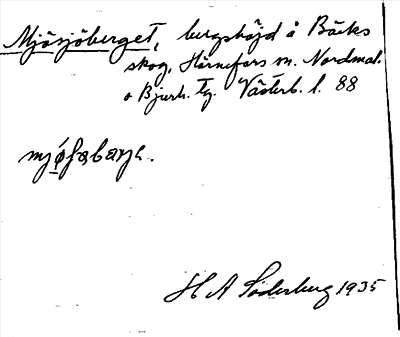 Mjösjöberget, bergshöjd å Bäcks
skog, Hörnefors m. Nordmal.
o Bjurh. tg. Västerb. l. 88
H A Söderberg 1935